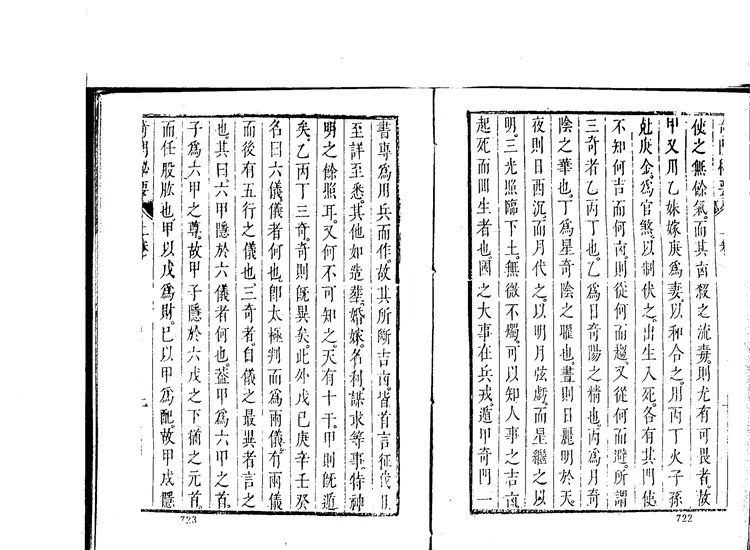 使之無餘氣而其凶殺之流毒則尤有可畏者故
甲又用乙妹嫁庚為妻以和合之用丙丁火子孫
尅庚金為官煞以制伏之出生入死各有其門使
不知何吉而何凶則從何而趨又從何而避所謂
三奇者乙丙丁也乙為日奇陽之精也丙為月奇
陰之華也丁為星奇陰之曜也晝則日麗明於天
夜則日西沉而月代之以明月弦虧而星繼之以
明三光照臨下土無微不燭可以知人事之吉凶
起死而回生者也國之大事在兵戎遁甲奇門一
722
書專為用兵而作故其所斷吉凶皆首言征伐且
至詳至悉其他如造葬婚嫁名利謀求等事特神
明之餘照耳又何不可知之天有十干甲則既遁
矣乙丙丁三奇奇則既異矣此外戊己庚辛壬癸
名曰六儀儀者何也即太極判而為兩儀有兩儀
而後有五行之儀也三奇者自儀之最異者言之
也其曰六甲隱於六儀者何也蓋甲為六甲之首
子為六甲之尊故甲子隱於六戊之下猶之元首
而任股肱也甲以戊為財己以甲為配故甲戌隱
奇門秘要 上卷
723